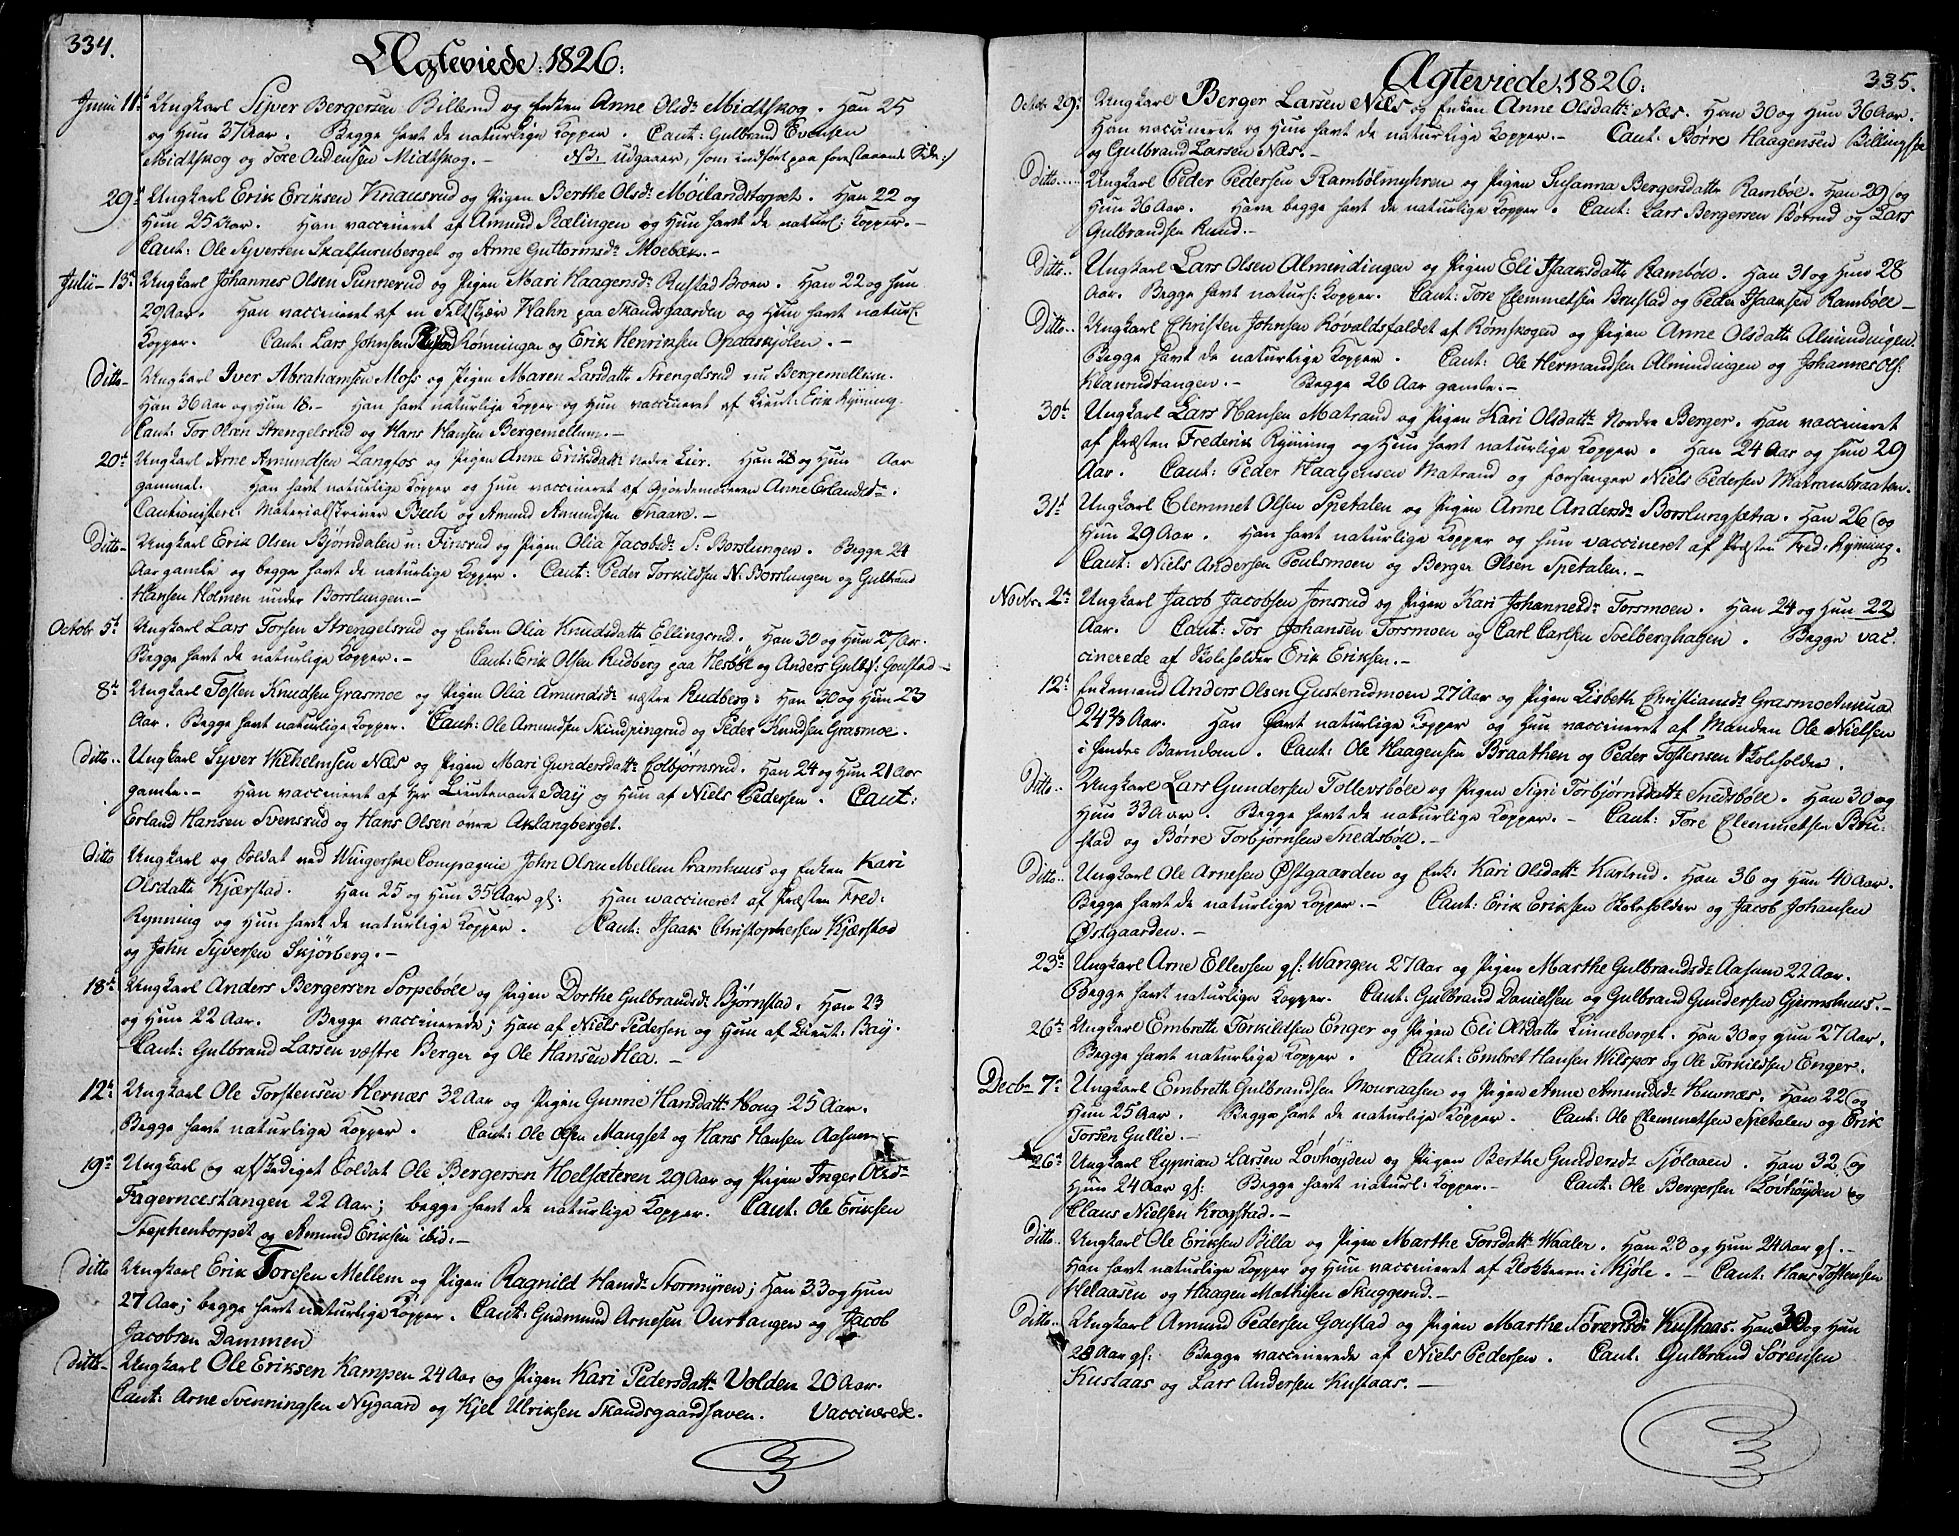 334.
Ægteviede: 1826:
Junii 11te Ungkarl Syver Bergersen Billerud og Enken Anne Olsdr Midtskog. Han 25
og Hun 37 Aar. Begge havt de naturlige Kopper. Caut: Gulbrand Evensen
Midtskog og Tore Andersen Midtskog.— NB: udgaaer, som indført paa forestaaende Side:/
29de Ungkarl Erik Eriksen Knausrud og Pigen Berthe Olsdr Möilandstorpet. Han 22 og
Hun 25 Aar. Han vaccineret af Amund Rælingen og Hun havt de naturl: Kopper.—
Caut: Ole Syversen Skalfuruberget og Anne Guttormsdr Moebæk.—
Julii— 13de Ungkarl Johannes Olsen Punnerud og Pigen Mari Haagensdr Rustad Broen. Han 22 og Hun
20 Aar. Han vaccineret af en Feltskjær Hahn paa Skandsgaarden og Hun havt naturl:
Kopper. Caut: Lars Johnsen Rönningen og Erik Henriksen Opaaskjölen.—
Ditto— Ungkarl Iver Abrahamsen Moss og Pigen Maren Larsdatter Strengelsrud nu Bergemellum.
Han 36 Aar og Hun 18.— Han havt naturlige Kopper og Hun vaccineret af Lieut: Erik Rynning.
Caut: Tor Olsen Strengelsrud og Hans Hansen Bergemellum.—
20de Ungkarl Arne Amundsen Langfos og Pigen Anne Eriksdatter nedre Lier. Han 28 og Hun Aar
gammel. Han havt naturlige Kopper og Hun vaccineret af Gjordemoderen Anne Erlandsdr.
Cautionister: Materialskriver Bech og Amund Amundsen Snaare.—
Ditto— Ungkarl Erik Olsen Björndalen u: Finsrud og Pigen Olia Jacobsdr S: Borslungen. Begge 24
Aar gamle og begge havt de naturlige Kopper. Caut: Peder Torkildsen N: Borslungen og Gulbrand
Hansen Holmen under Borslungen.—
Octobr 5te Ungkarl Lars Torsen Strengelsrud og Enken Olia Knudsdatter Ellingsrud. Han 30 og Hun 27 Aar.
Begge havt de naturlige Kopper.— Caut: Erik Olsen Rudberg paa Nesböle og Anders Gulbr: Goustad—
8de Ungkarl Tosten Knudsen Grasmoe og Pigen Olia Amundsdr vestre Rudberg: Han 30 og Hun 23
Aar. Begge havt naturlige Kopper. Caut: Ole Amundsen Skindpungrud og Peder Knudsen Grasmoe.
Ditto.. Ungkarl Syver Wilhelmsen Næs og Pigen Mari Gundersdatter Edbjörnsrud. Han 24 og Hun 21 Aar
gamle.— Han vaccineret af Hr Lieutenant Bay og Hun af Niels Pedersen. Caut:
Erland Hansen Svensrud og Hans Olsen övre Aklangberget.
Ditto Ungkarl og Soldat ved Wingerske Compagnie John Olsen Mellem Framhuus og Enken Kari
Olsdatter Kjærstad. Han 25 og Hun 35 Aar gl: Han vaccineret af Præsten Fred:
Rynning og Hun havt de naturlige Kopper. Caut: Isaak Christophersen Kjærstad
og John Syversen Skjörberg.—
18de Ungkarl Anders Bergersen Sorpeböle og Pigen Dorthe Gulbrandsdr Björnstad. Han 23
og Hun 22 Aar. Begge vaccinerede; Han af Niels Pedersen og Hun af Lieut: Bay.
Caut: Gulbrand Larsen vestre Berger og Ole Hansen Hea.—
12te Ungkarl Ole Torstensen Hernæs 32 Aar og Pigen Gunne Hansdatter Houg 25 Aar.
Begge havt naturlige Kopper. Caut: Ole Olsen Mangset og Hans Hansen Aasum
19de Ungkarl og afskediget Soldat Ole Bergersen Hoelsæteren 29 Aar og Pigen Inger Arnesdr
Fagernæstangen 22 Aar; begge havt de naturlige Kopper. Caut: Ole Eriksen
Stephentorpet og Amund Eriksen ibid:—
Ditto Ungkarl Erik Toresen Mellem og Pigen Ragnild Hansdr Stormyren; Han 33 og Hun
27 Aar; begge havt naturlige Kopper. Caut: Gudmund Arnesen Ourtangen og Jacob
Jacobsen Dammen
Ditto— Ungkarl Ole Eriksen Kampen 24 Aar og Pigen Kari Pedersdatter Volden 20 Aar.
Caut: Arne Svenningsen Nygaard og Kjel Ulriksen Skandsgaardhaven. Vaccinerede.
335.
Ægteviede 1826:
Octobr 29: Ungkarl Berger Larsen Næs og Enken Anne Olsdatter Næs. Han 30 og Hun 36 Aar.
Han vaccineret og Hun havt de naturlige Kopper.— Caut: Börre Haagensen
og Gulbrand Larsen Næs.—
Ditto.... Ungkarl Peder Pedersen Rambölmyhren og Pigen Susanna Bergersdatter Ramböl. Han 29 og
Hun 36 Aar. Have begge havt de naturlige Kopper. Caut: Lars Bergersen Böerud og Lars
Gulbrandsen Rund.—
Ditto.. Ungkarl Lars Olsen Almindingen og Pigen Eli Isaaksdatter Ramböle. Han 31 og Hun 28
Aar. Begge havt naturl: Kopper. Caut: Tore Clemmetsen Brustad og Peder Isaaksen Ramböle—
Ditto.. Ungkarl Christen Johnsen Rövaldsfaldet af Römskogen og Pigen Anne Olsdatter Almindingen.
Begge havt de naturlige Kopper. Caut: Ole Hermandsen Almindingen og Johannes Ols:
Klanrudtangen.— Begge 26 Aar gamle.—
30te Ungkarl Lars Hansen Matrand og Pigen Kari Olsdatter Nordre Berger. Han vaccineret
af Præsten Frederik Rynning og Hun havt naturlige Kopper. Han 24 Aar og Hun 29
Aar. Caut: Peder Haagensen Matrand og Forsanger Niels Pedersen Matranbraaten.
31te Ungkarl Clemmet Olsen Spetalen og Pigen Anne Andersdr Borslungsætra. Han 26 og
Hun 29 Aar. Han havt naturlige Kopper og Hun vaccineret af Præsten Fred: Rynning.
Caut: Niels Andersen Poulsmoen og Berger Olsen Spetalen.—
Novbr. 2de Ungkarl Jacob Jacobsen Jonsrud og Pigen Kari Johannesdr Torsmoen. Han 24 og Hun 22
Aar. Caut: Tor Johansen Torsmoen og Carl Carlsen Soelberghagen. Begge vac:
cinerede af Skoleholder Erik Eriksen.—
12te Enkemand Anders Olsen Gusterudmoen 27 Aar og Pigen Lisbeth Christiansdr Grasmoe
24⅔ Aar. Han havt naturlige Kopper og Hun vaccineret af Manden Ole Nielsen
i hendes Barndom. Caut: Ole Haagensen Braathen og Peder Tostensen Skoleholder.
Ditto.. Ungkarl Lars Gundersen Tollevsböle og Pigen Sigri Torbjörnsdatter Snedsböle. Han 30 og
Hun 33 Aar. Begge havt de naturlige Kopper.— Caut: Tore Clemmetsen Bru:
stad og Börre Torbjörnsen Snedsböle.—
Ditto.. Ungkarl Ole Arnesen Östgaarden og Enke Kari Olsdatter Karlrud. Han 36 og Hun 40 Aar.
Begge havt de naturlige Kopper.— Caut: Erik Eriksen Skoleholder og Jacob Johansen
Östgaarden.—
23de Ungkarl Arne Ellevsen gl: Wangen 27 Aar og Pigen Marthe Gulbrandsdr Aasum 22 Aar.
Begge havt naturlige Kopper. Caut: Gulbrand Danielsen og Gulbrand Gundersen Gjermshuus.—
26de Ungkarl Embreth Torkildsen Enger og Pigen Eli Olsdatter Linneberget. Han 30 og Hun 27 Aar.
Begge havt naturlige Kopper. Caut: Embret Hansen Wilspor og Ole Torkildsen Enger.
Decbr 7de Ungkarl Embreth Gulbrandsen Mouraasen og Pigen Anne Amundsdr Huusnæs. Han 22 og
Hun 25 Aar. Begge havt de naturlige Kopper. Caut: Ole Clemmetsen Spetalen og Erik
Torsen Gullie.—
26de Ungkarl Cyprian Larsen Lövhöyden og Pigen Berthe Gundersdr Sjölaaen. Han 32 og
Hun 24 Aar gl: Begge havt naturl: Kopper.— Caut: Ole Bergersen Lövhöyden og
Claus Nielsen Krogstad.—
Ditto.. Ungkarl Ole Eriksen Billa og Pigen Marthe Torsdatter Waaler. Han 23 og Hun 24 Aar gl.—
Han havt naturlige Kopper og Hun vaccineret af Klokkeren i Kjöle.— Caut: Hans Tostensen
Helaasen og Haagen Mathisen Skuggerud.—
Ditto.. Ungkarl Amund Pedersen Goustad og Pigen Marthe Sörensdr Kustaas. Han 30 og Hun
28 Aar gl: Begge vaccinerede af Niels Pedersen. Caut: Gulbrand Sörensen
Kustaas og Lars Andersen Kustaas.—